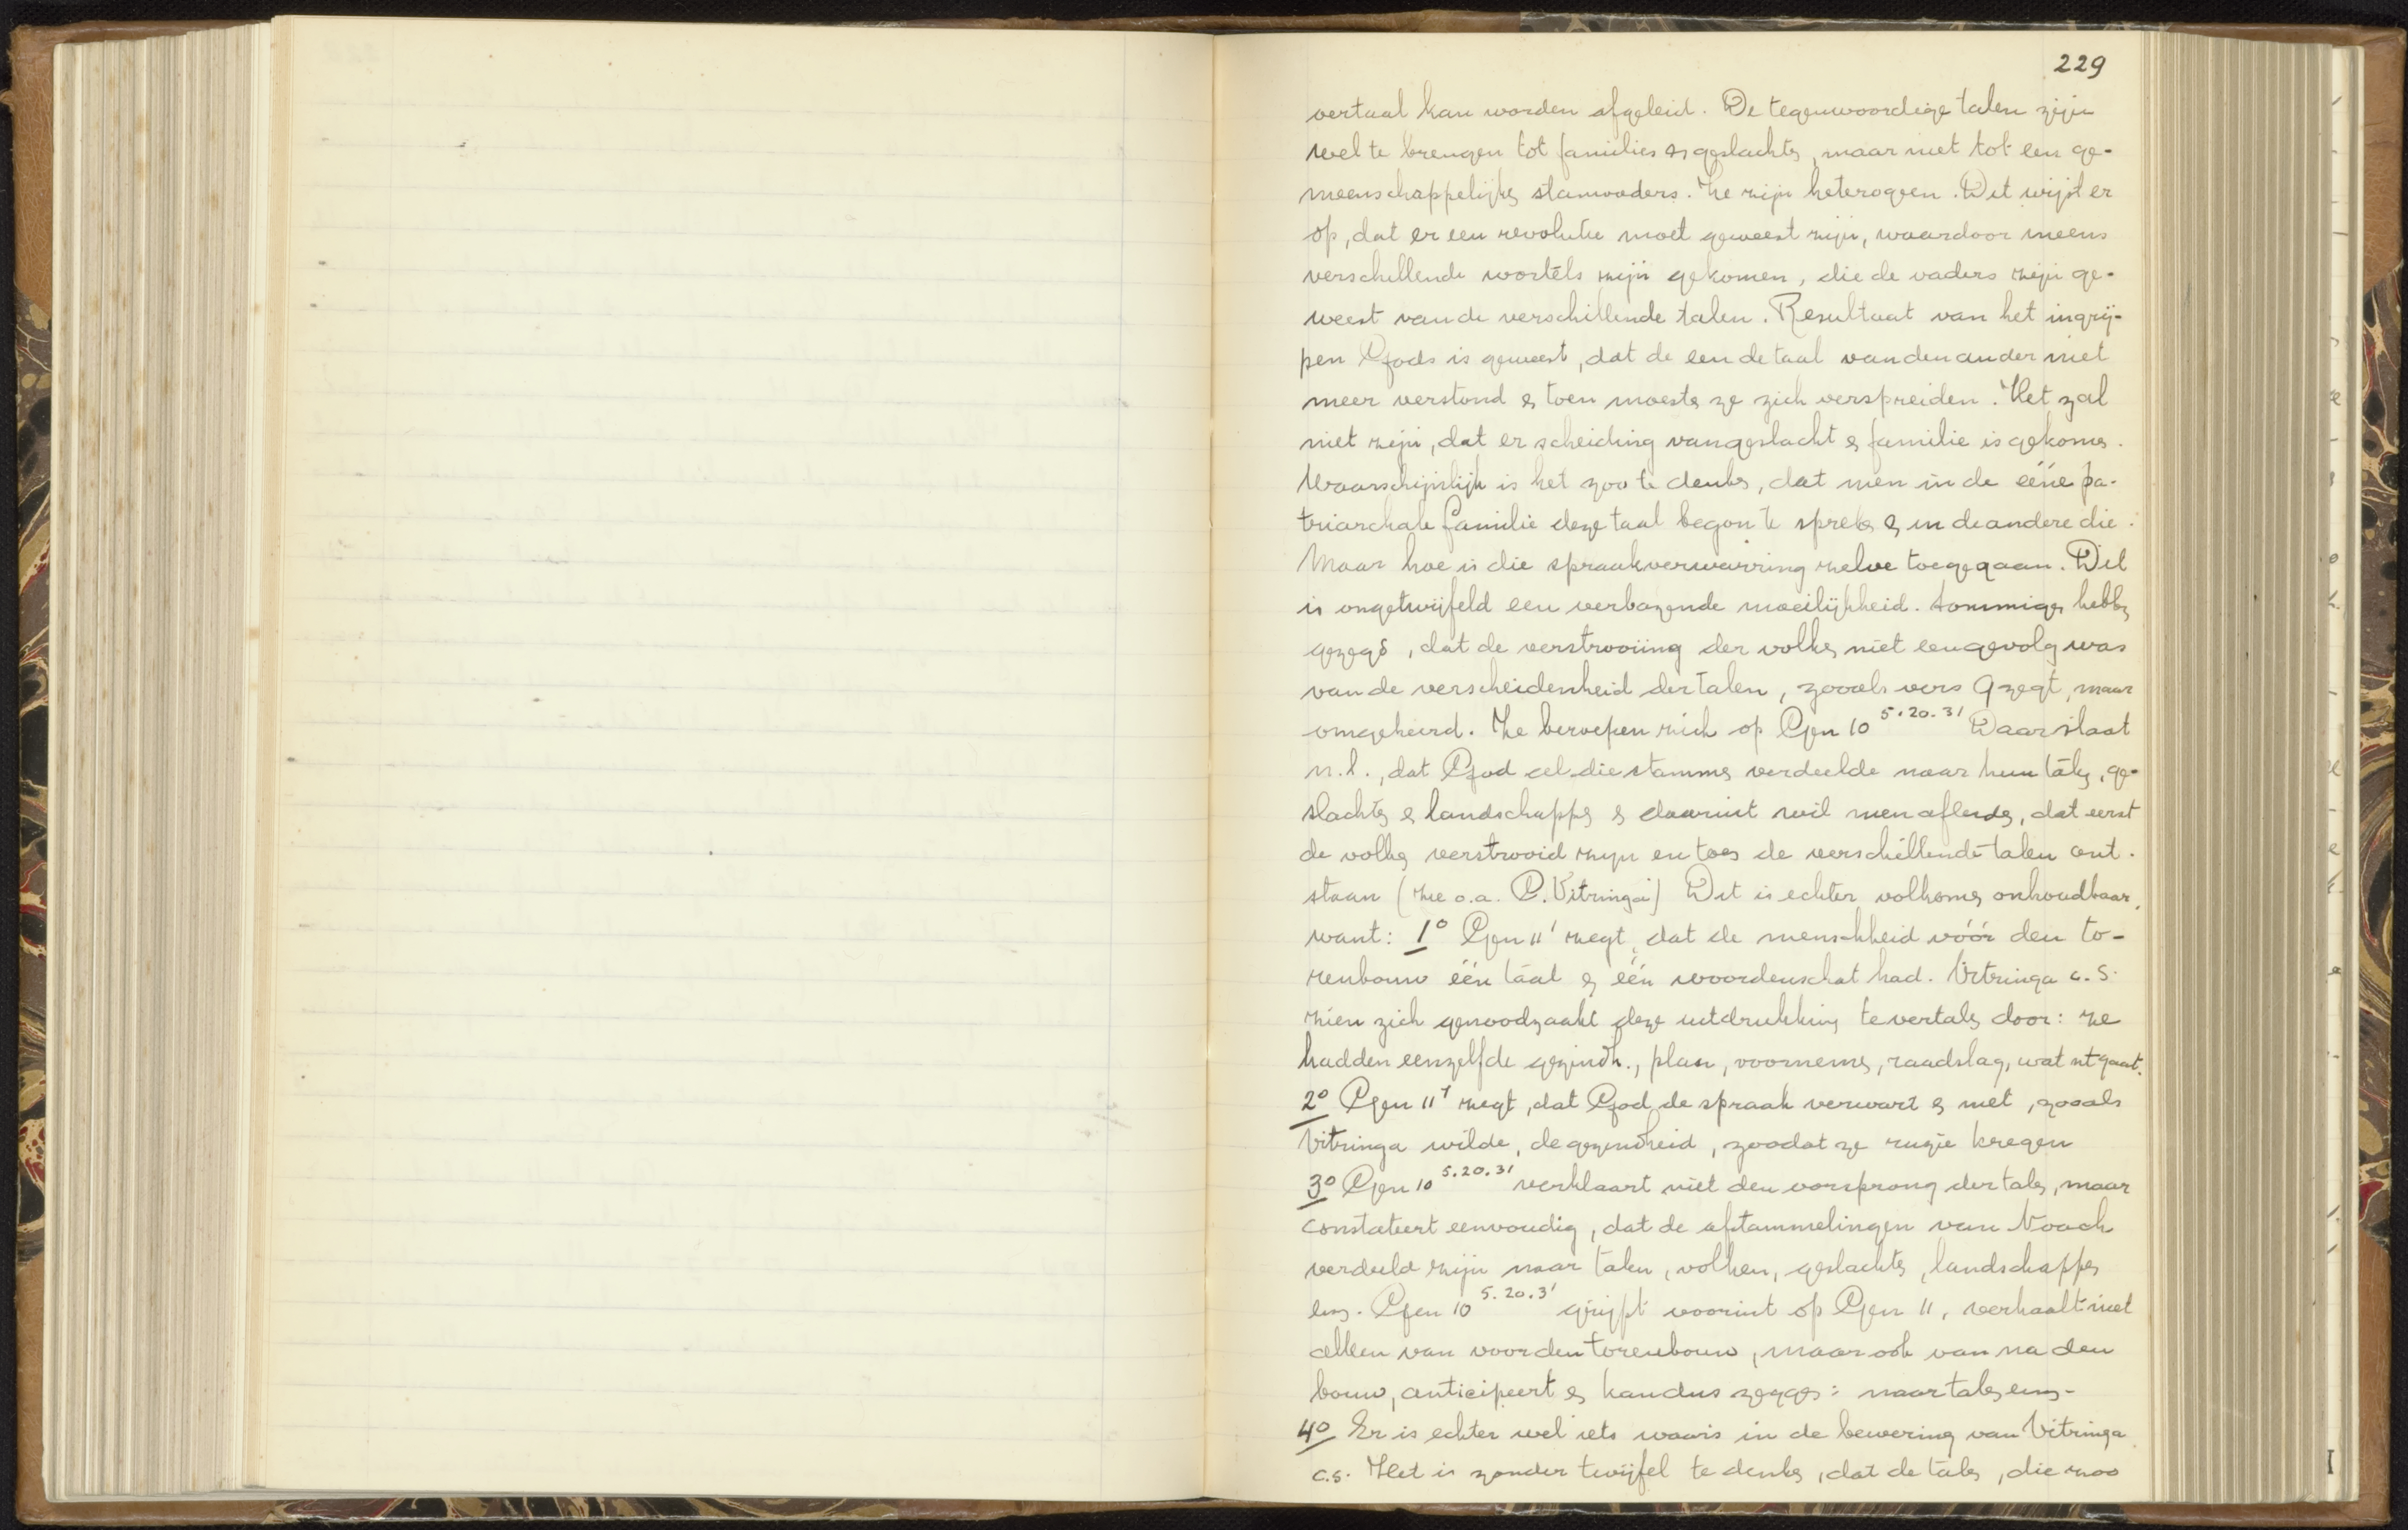 229
vertaal kan worden afgeleid. De tegenwoordige talen zijn
wel te brengen tot families en geslachten, maar niet tot een ge-
meenschappelijken stamvaders. Ze zijn heterogeen. Dit wijst er
op, dat er een revolutie moet geweest zijn, waardoor ineens
verschillende wortels zijn gekomen, die de vaders zijn ge-
weest van de verschillende talen. Resultaat van het ingrij-
pen Gods is geweest, dat de een de taal van den ander niet
meer verstond en toen moesten ze zich verspreiden. Het zal
niet zijn, dat er scheiding van geslacht en familie is gekomen.
Waarschijnlijk is het zoo te denken, dat men in de ééne pa-
triarchale familie deze taal begon te spreken en in de andere die.
Maar hoe is die spraakverwarring zelve toegegaan. Dit
is ongetwijfeld een verbazende moeilijkheid. Sommigen hebben
gezegd, dat de verstrooiing der volken niet een gevolg was
van de verscheidenheid der talen, zooals vers 9 zegt, maar
omgekeerd. Ze beroepen zich op Gen 10 5.20.31 Daar staat
n.l., dat God al die stammen verdeelde naar hun talen, ge-
slachten en landschappen en daaruit wil men afleiden, dat eerst
de volken verstrooid zijn en toen de verschillende talen ont-
staan (zie o.a. C. Vitringa) Dit is echter volkomen onhoudbaar,
want: 1o Gen 11 1 zegt, dat de menschheid vóór den to-
renbouw één taal en één woordenschat had. Vitringa c.s.
zien zich genoodzaakt deze uitdrukking te vertalen door: ze
hadden eenzelfde gezindh., plan, voornemen, raadslag, wat nt gaat.
2o Gen 11 7 zegt, dat God de spraak verwart en niet, zooals
Vitringa wilde, de gezindheid, zoodat ze ruzie kregen
3o Gen 10 5.20.31 verklaart niet den oorsprong der talen, maar
constateert eenvoudig, dat de afstammelingen van Noach
verdeeld zijn naar talen, volken, geslachten, landschappen
enz. Gen 10 5.20.31 grijpt vooruit op Gen 11, verhaalt niet
alleen van voor den torenbouw, maar ook van na den
bouw, anticipeert en kan dus zeggen: naar talen enz.
4o Er is echter wel iets waars in de bewering van Vitringa
c.s. Het is zonder twijfel te denken, dat de talen, die zoo